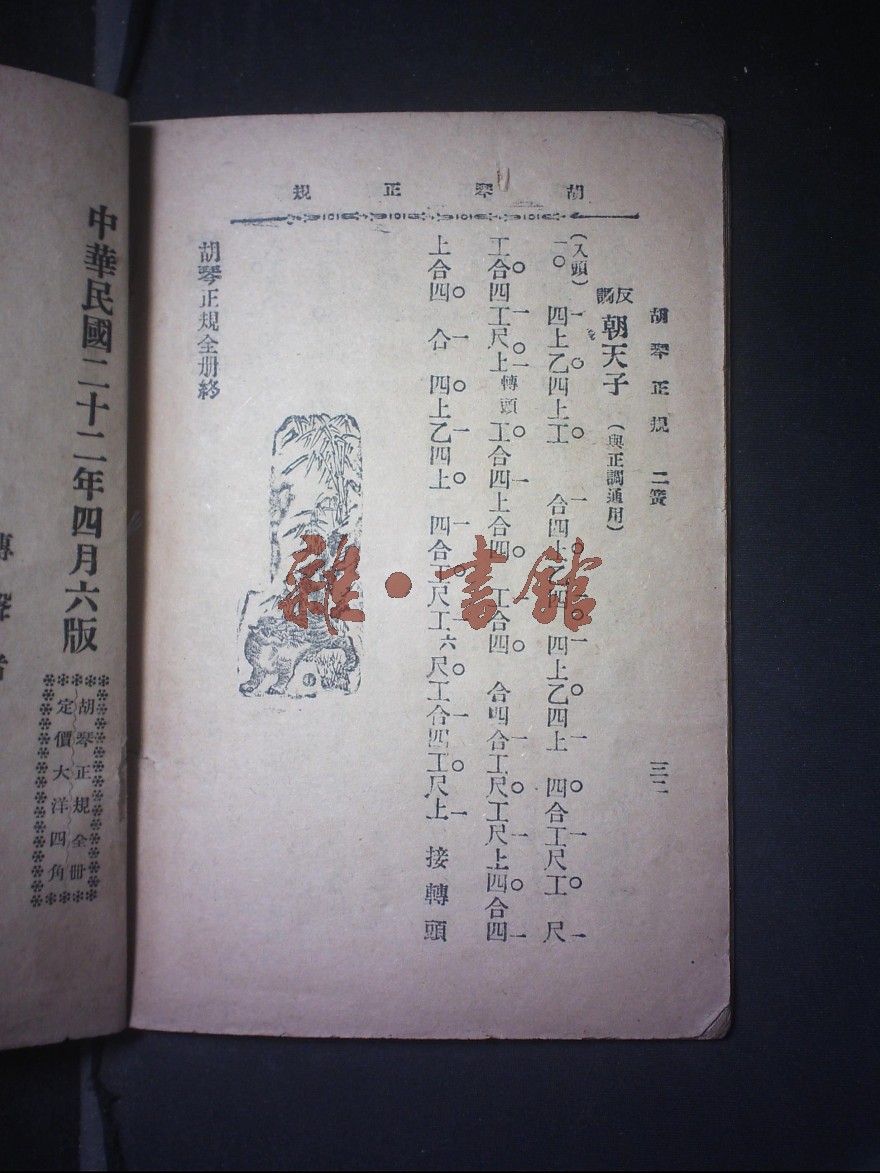 胡琴正規
胡琴正規 二簧 三二
反調 朝天子 (與正調通用)
(入頭)
一〇 四上乙四上工 合四上乙四 四上乙四上 四合工尺工 尺
工合四工尺上 轉頭 工合四上合四 工合四 合四合工尺工尺上四合四
上合四 合 四上乙四上 四合工尺工六尺工合四工尺上 接轉頭
雜·書館
胡琴正規全册終
中華民國二十二年四月六版
胡琴正規全冊
定價大洋四角